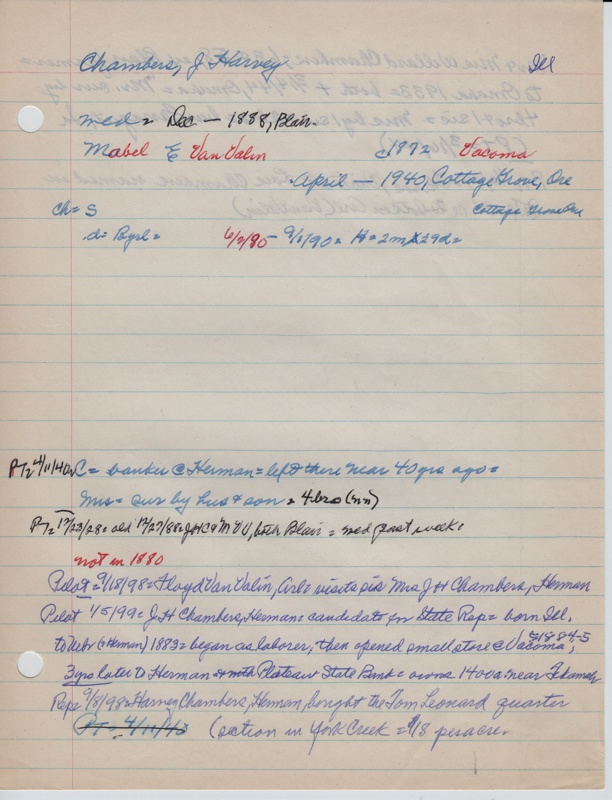 Chambers, J Harvey Ill
med = Dec — 1888, Blair.
Mabel E Van Valin c1872 Vacoma
April — 1940, Cottage Grove, Ore
ch = S Cottage Grove Ore
d = Byrl = 6/2/90 - 9/1/90 = H = 2m 29d =
P/2 4/11/40 = C = banker @ Herman = left there near 40 yrs ago =
Mrs = sur by hus & son = 4 bro (nn)
P/2 12/23/28 = old 12/27/88 = JHC & M VV, both Blair = med past week =
not in 1880
Pilot = 9/18/98 = Floyd Van Valin, Arl = visits sis Mrs J H Chambers, Herman
Pilot 1/5/99 = J H Chambers, Herman = candidate for State Rep = born Ill.
to Nebr (@ Herman) 1883 = began as laborer, then opened small store @ Vacoma, c1884-5
3 yrs later to Herman & with Plateau State Bank = owns 1400 a near Tekamah
Rep 9/8/98 = Harvey Chambers, Herman, bought the Tom Leonard quarter
PT = 4/11/ (section in York Creek = $18 per acre.